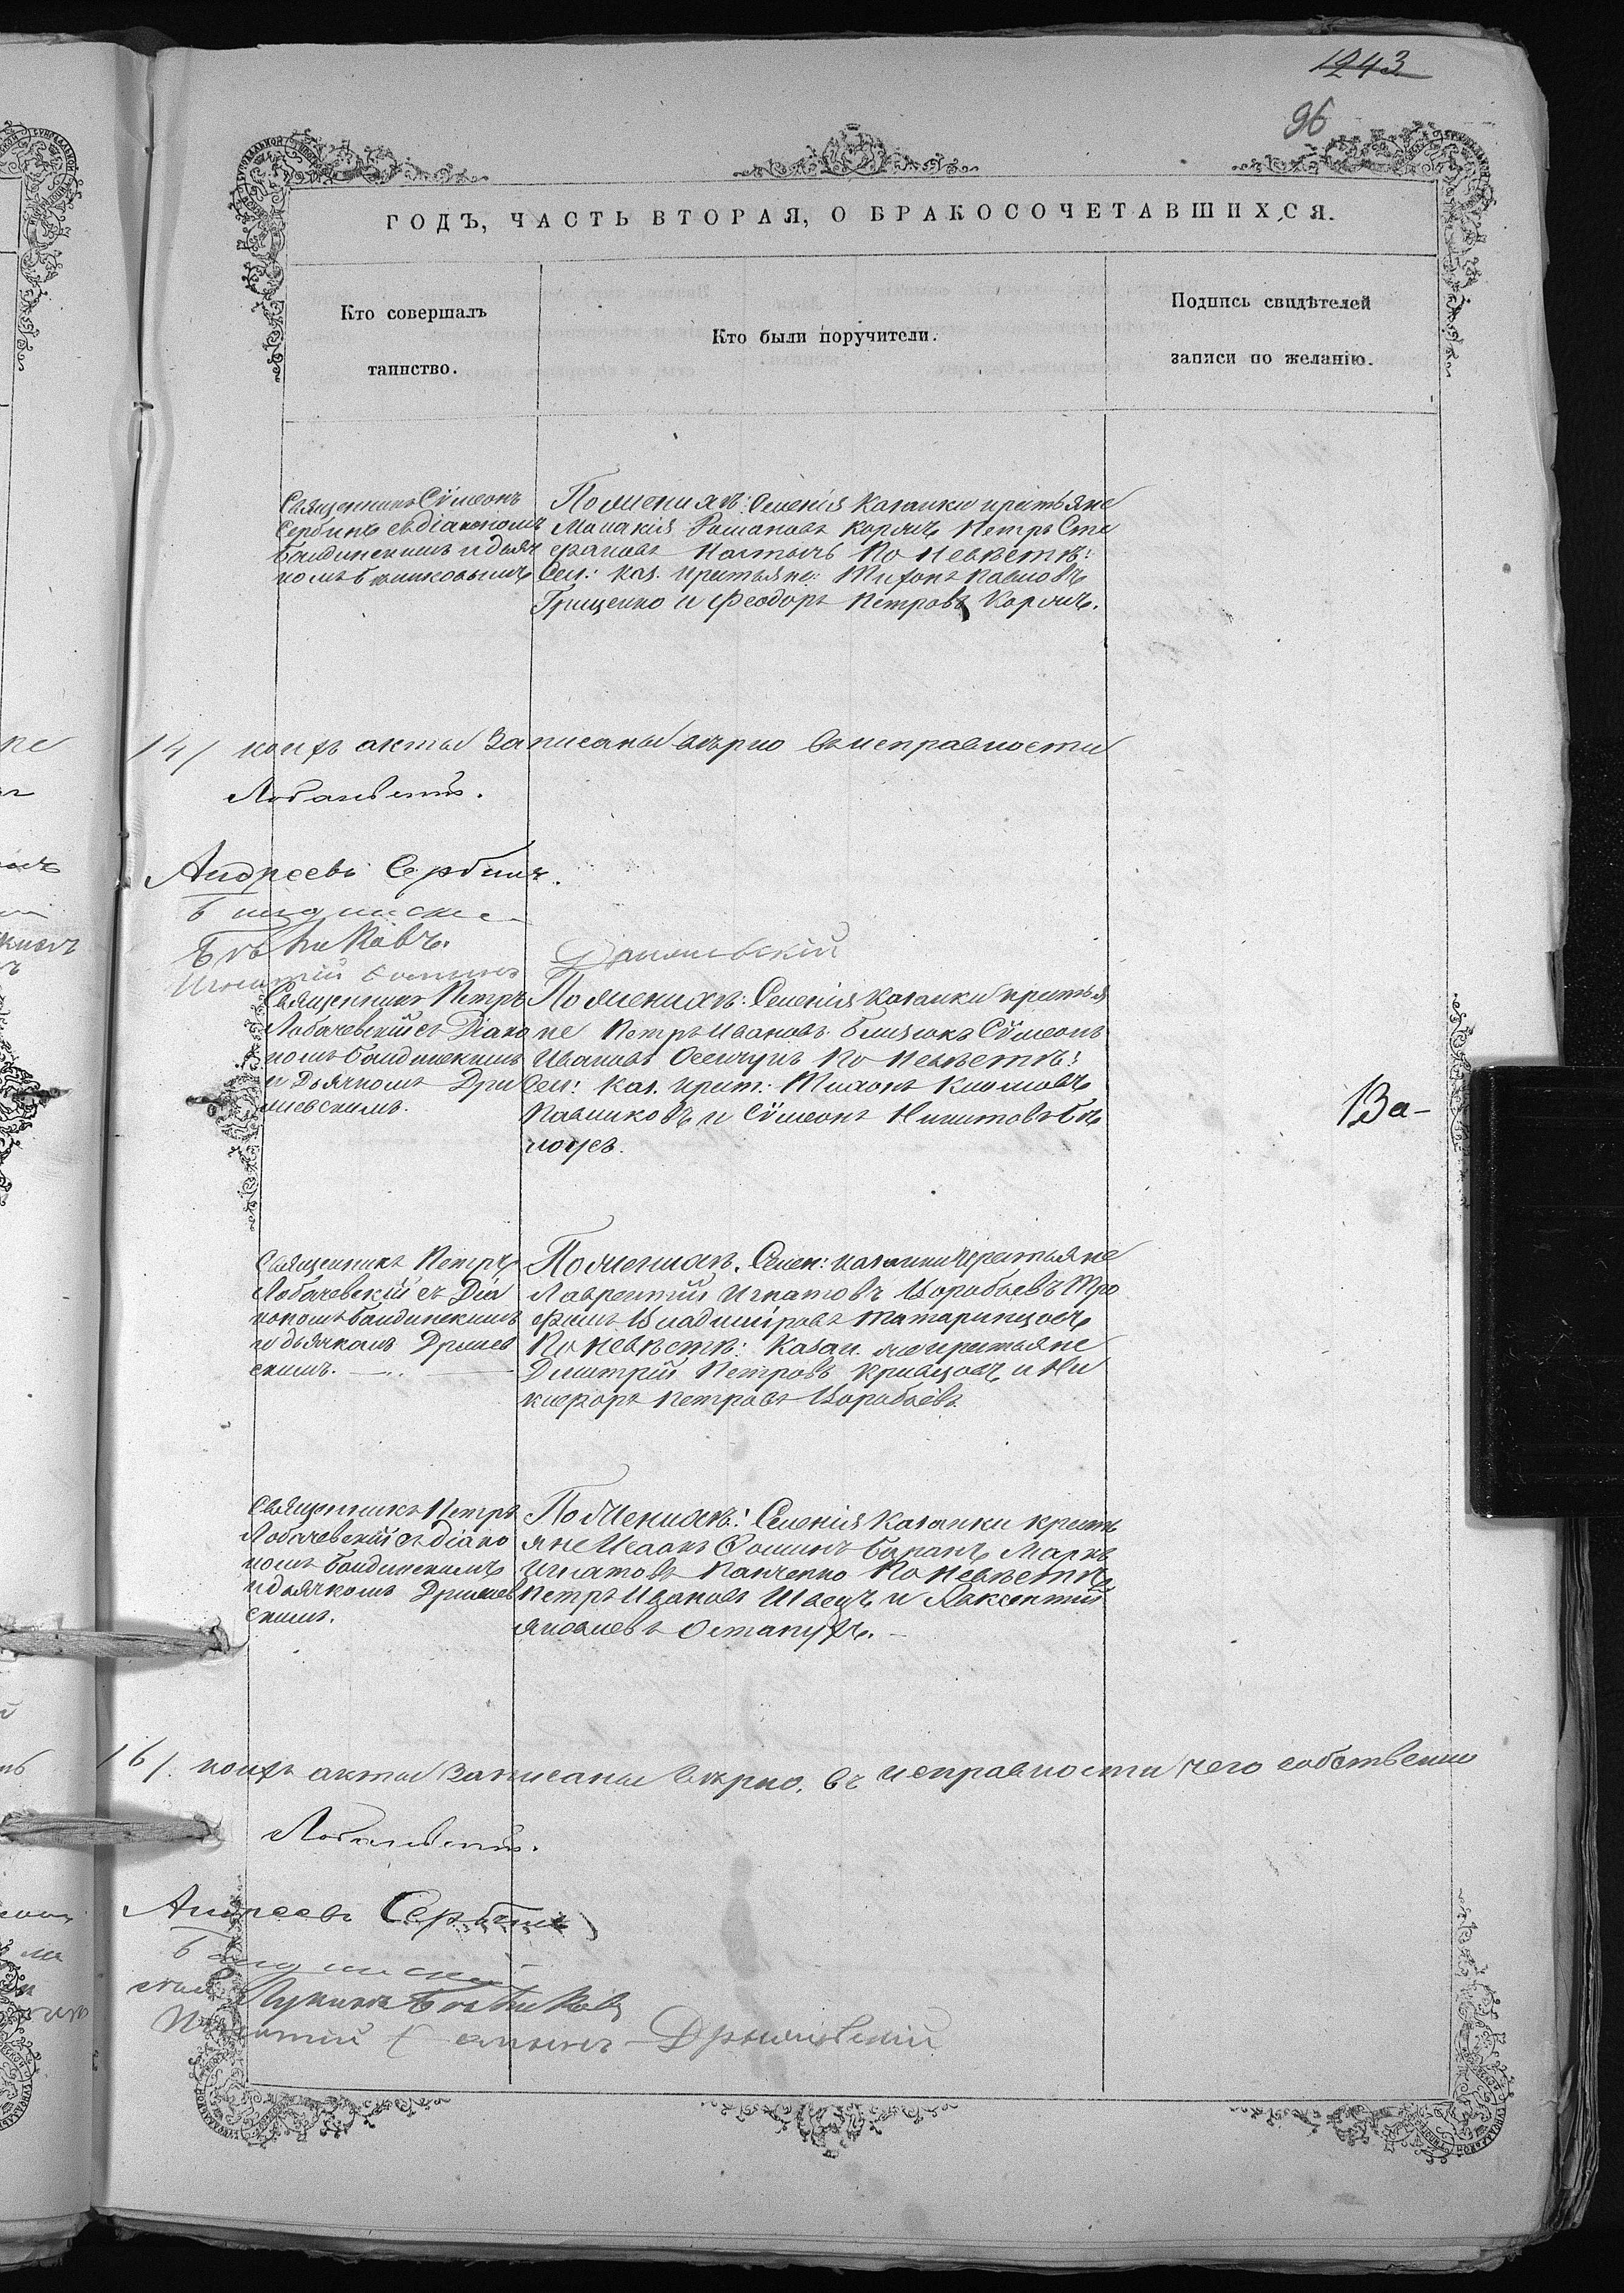 1243
96
ГОДЪ, ЧАСТЬ ВТОРАЯ, О БРАКОСОЧЕТАВШИХСЯ.
Кто совершалъ
таинство.
Кто были поручители.
Подпись свидѣтелей
записи по желанію.
Священникъ Сѵмеонъ
Сербинъ съ діакономъ
Бандинскимъ и дьяч
комъ Бѣликовымъ
По женихѣ: Селенія Казанки крестьяне
Малахія Романовъ Коржъ Петръ Сте
фановъ по невѣстѣ:
Сел: каз. крестьяне: Тихонъ Павловъ
Грищенко и Феодоръ Петровъ Коржъ.
14/ коихъ акты записаны вѣрно въ исправности
Лобачевскій.
Андреевъ Сербинъ.
Бѣликовъ.
Дрилевскій
Священникъ Петръ
Лобачевскій съ Діако
номъ Бандинскимъ
и Дьячкомъ Дри
левскимъ.
По женихѣ: Селенія Казанки крестья
не Петръ Ивановъ Близнюкъ Сѵмеонъ
Ивановъ по невѣстѣ:
Сел: Каз. крест: Климовъ
Павликовъ и Сѵмеонъ Никитовъ Бѣ
ноусъ.
Ва-
Священникъ Петръ
Лобачевскій съ Діа
кономъ Бандинскимъ
и дьячкомъ Дрилев
скимъ.
По женихѣ: Селен: казанки крестьяне
Лаврентій Игнатовъ Воробьевъ Тро
фимъ Владиміровъ Татаринцовъ
По невѣстѣ: Казан. крестьяне
Дмитрій Петровъ Кривцовъ и Ни
кифоръ Петровъ Воробьевъ
Священникъ Петръ
Лобачевскій съ діако
номъ Бандинскимъ
и дьячкомъ Дрилев
скимъ.
По женихѣ: Селенія Казанки кресть
яне Исаакъ Фоминъ Баранъ Маркъ
Игнатовъ Панченко по невѣстѣ
Петръ Ивановъ Швецъ и Авксентій
Яковлевъ Остапухъ.
16/. коихъ акты записаны вѣрно, въ исправности чего собственно
Лобачевскій.
Андреевъ Сербинъ
Лукинъ Бѣликовъ
Игнатій Дрилевскій